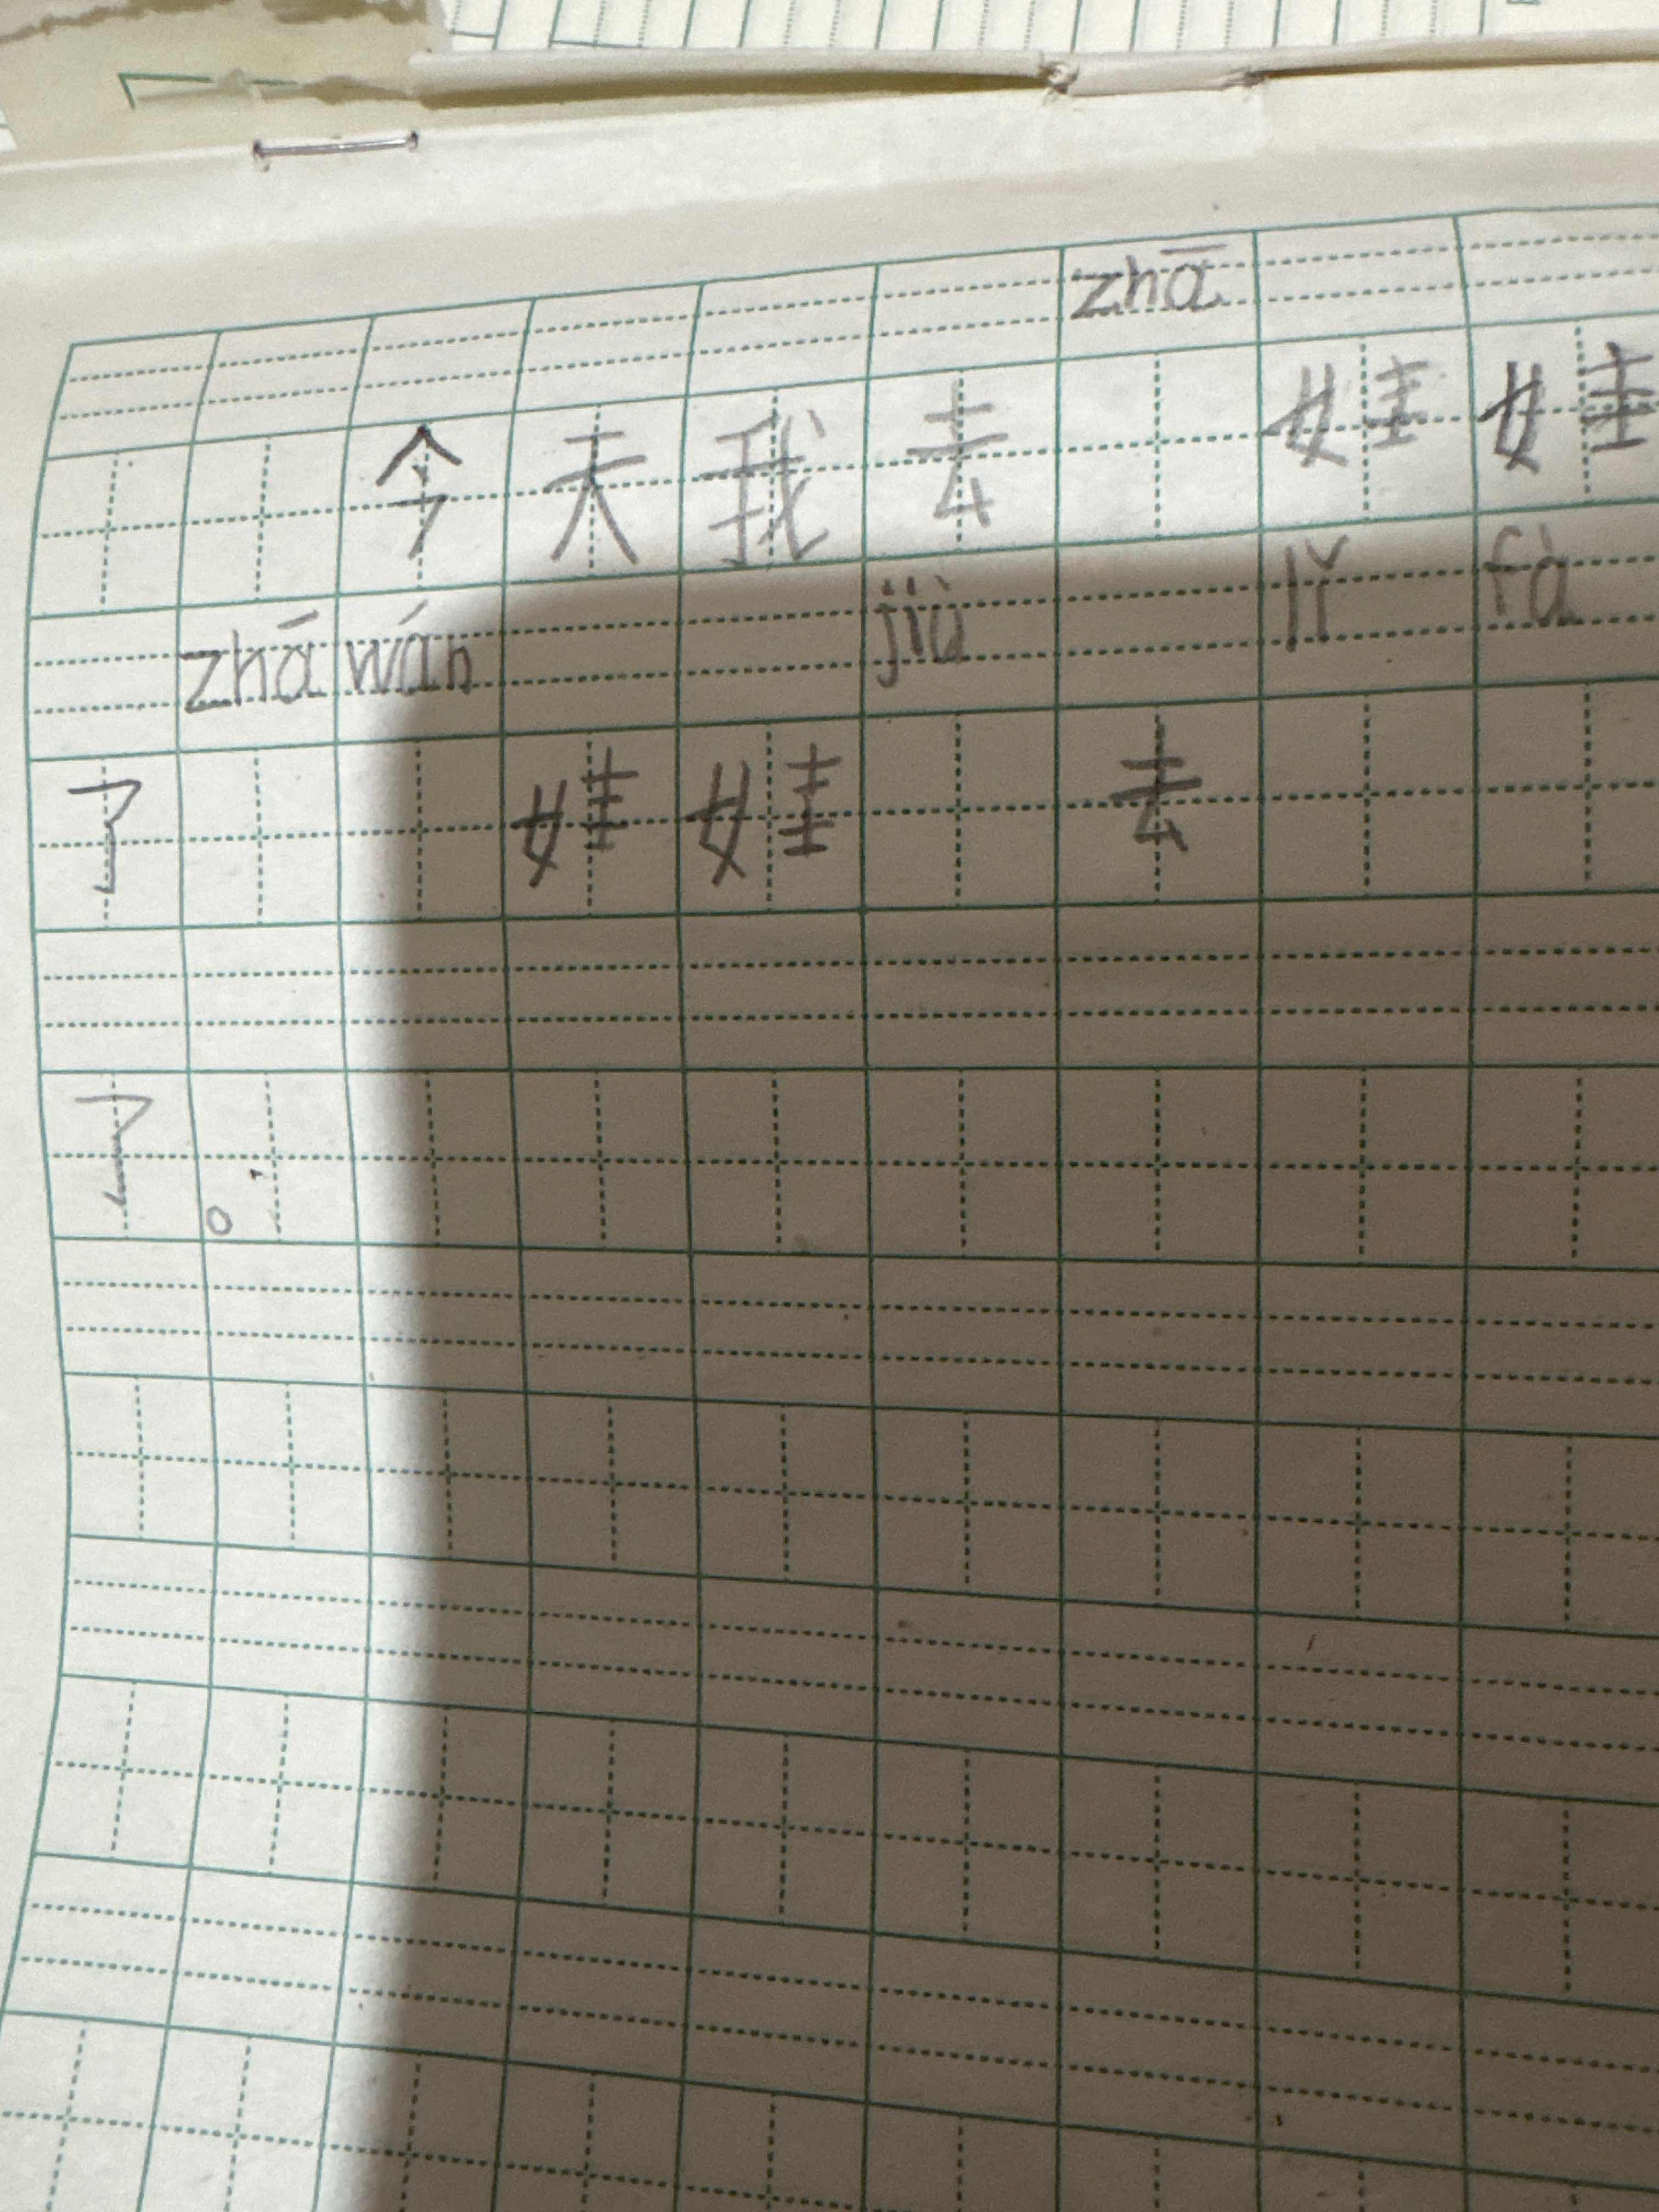 zhā
今天我去娃娃
zhā wán jiù lǐ fà
了娃娃去
了。